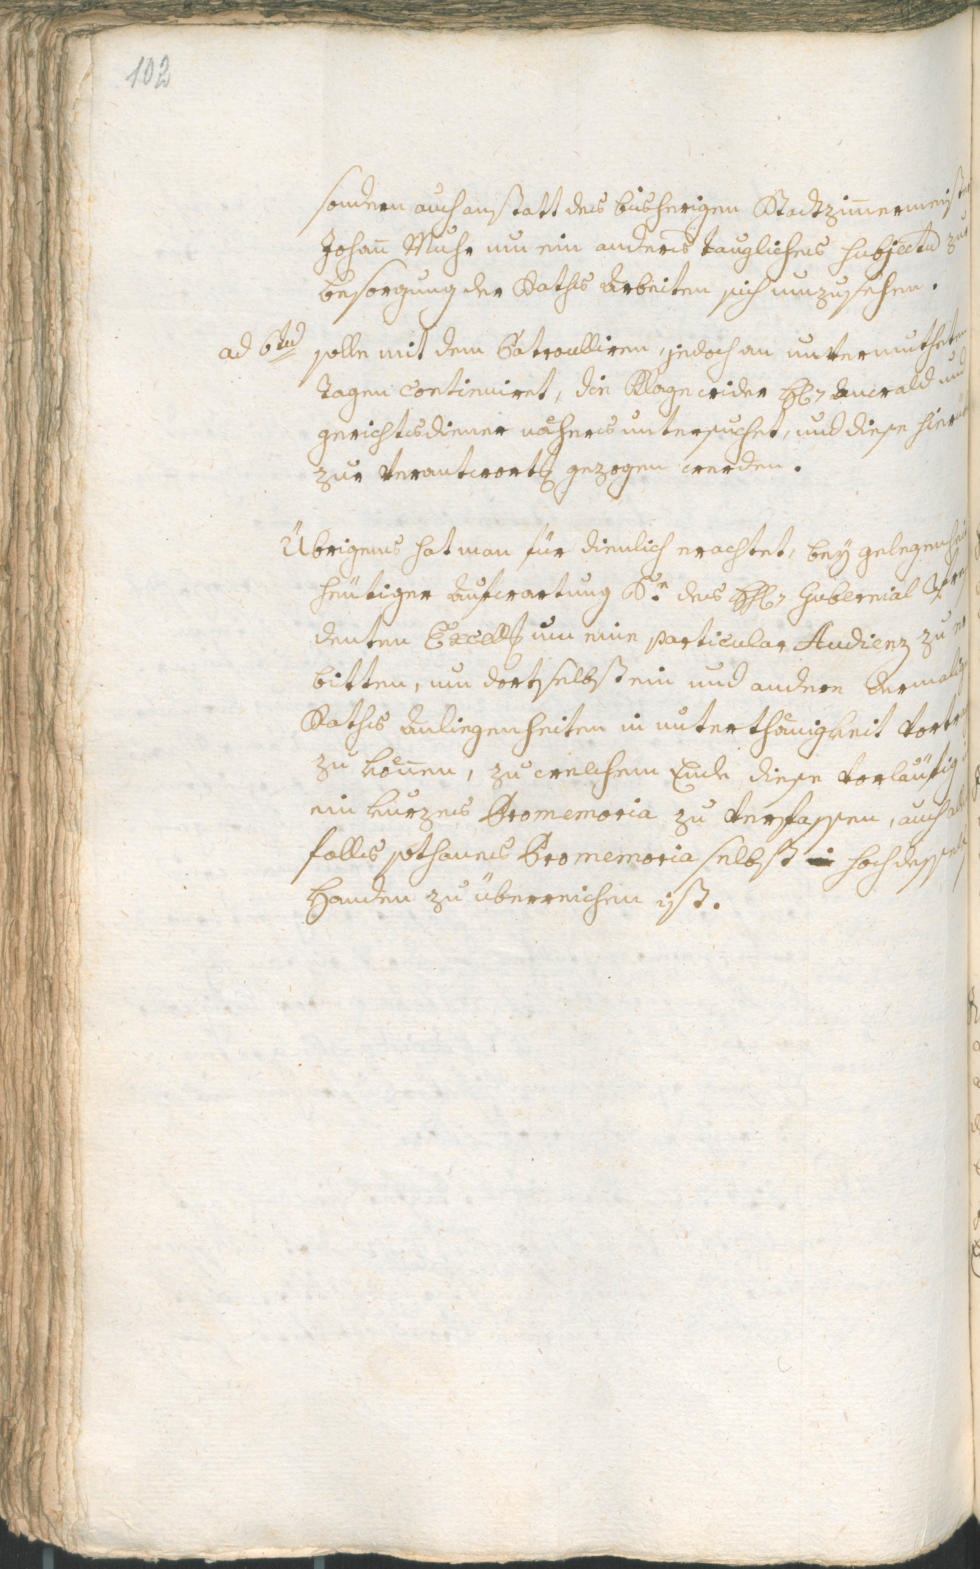 102
sondern auch anstatt des bisherigen Stadtzimmermeist
Johann Muhr um ein anderes taugliches subjectu zu
besorgung der Raths Arbeiten sich umzusehen.
ad 6tu solle mit dem Patroulliren, jedoch an unvermutheten
Tägen Continuiret, die Klage wider H. und
gerichtsdiener näher untersuchet, und diese hier
zur Verantwortg gezogen werden.
Übrigens hat man für dienlich erachtet, bey gelegenhei
heutiger Aufwartung Sr. des H. Gubernial Prae
denten Excellz um eine particular Audienz zu er
bitten, um dortselbst ein und andere dermalige
Raths Anliegenheiten in unterthänigkeit vortr
zu können, zu welchem Ende diese vorläufig
ein kurzes Promemoria zu verfassen, auch
falls sothanes Promemoria selbst hochdessen
Handen zu überreichen ist.